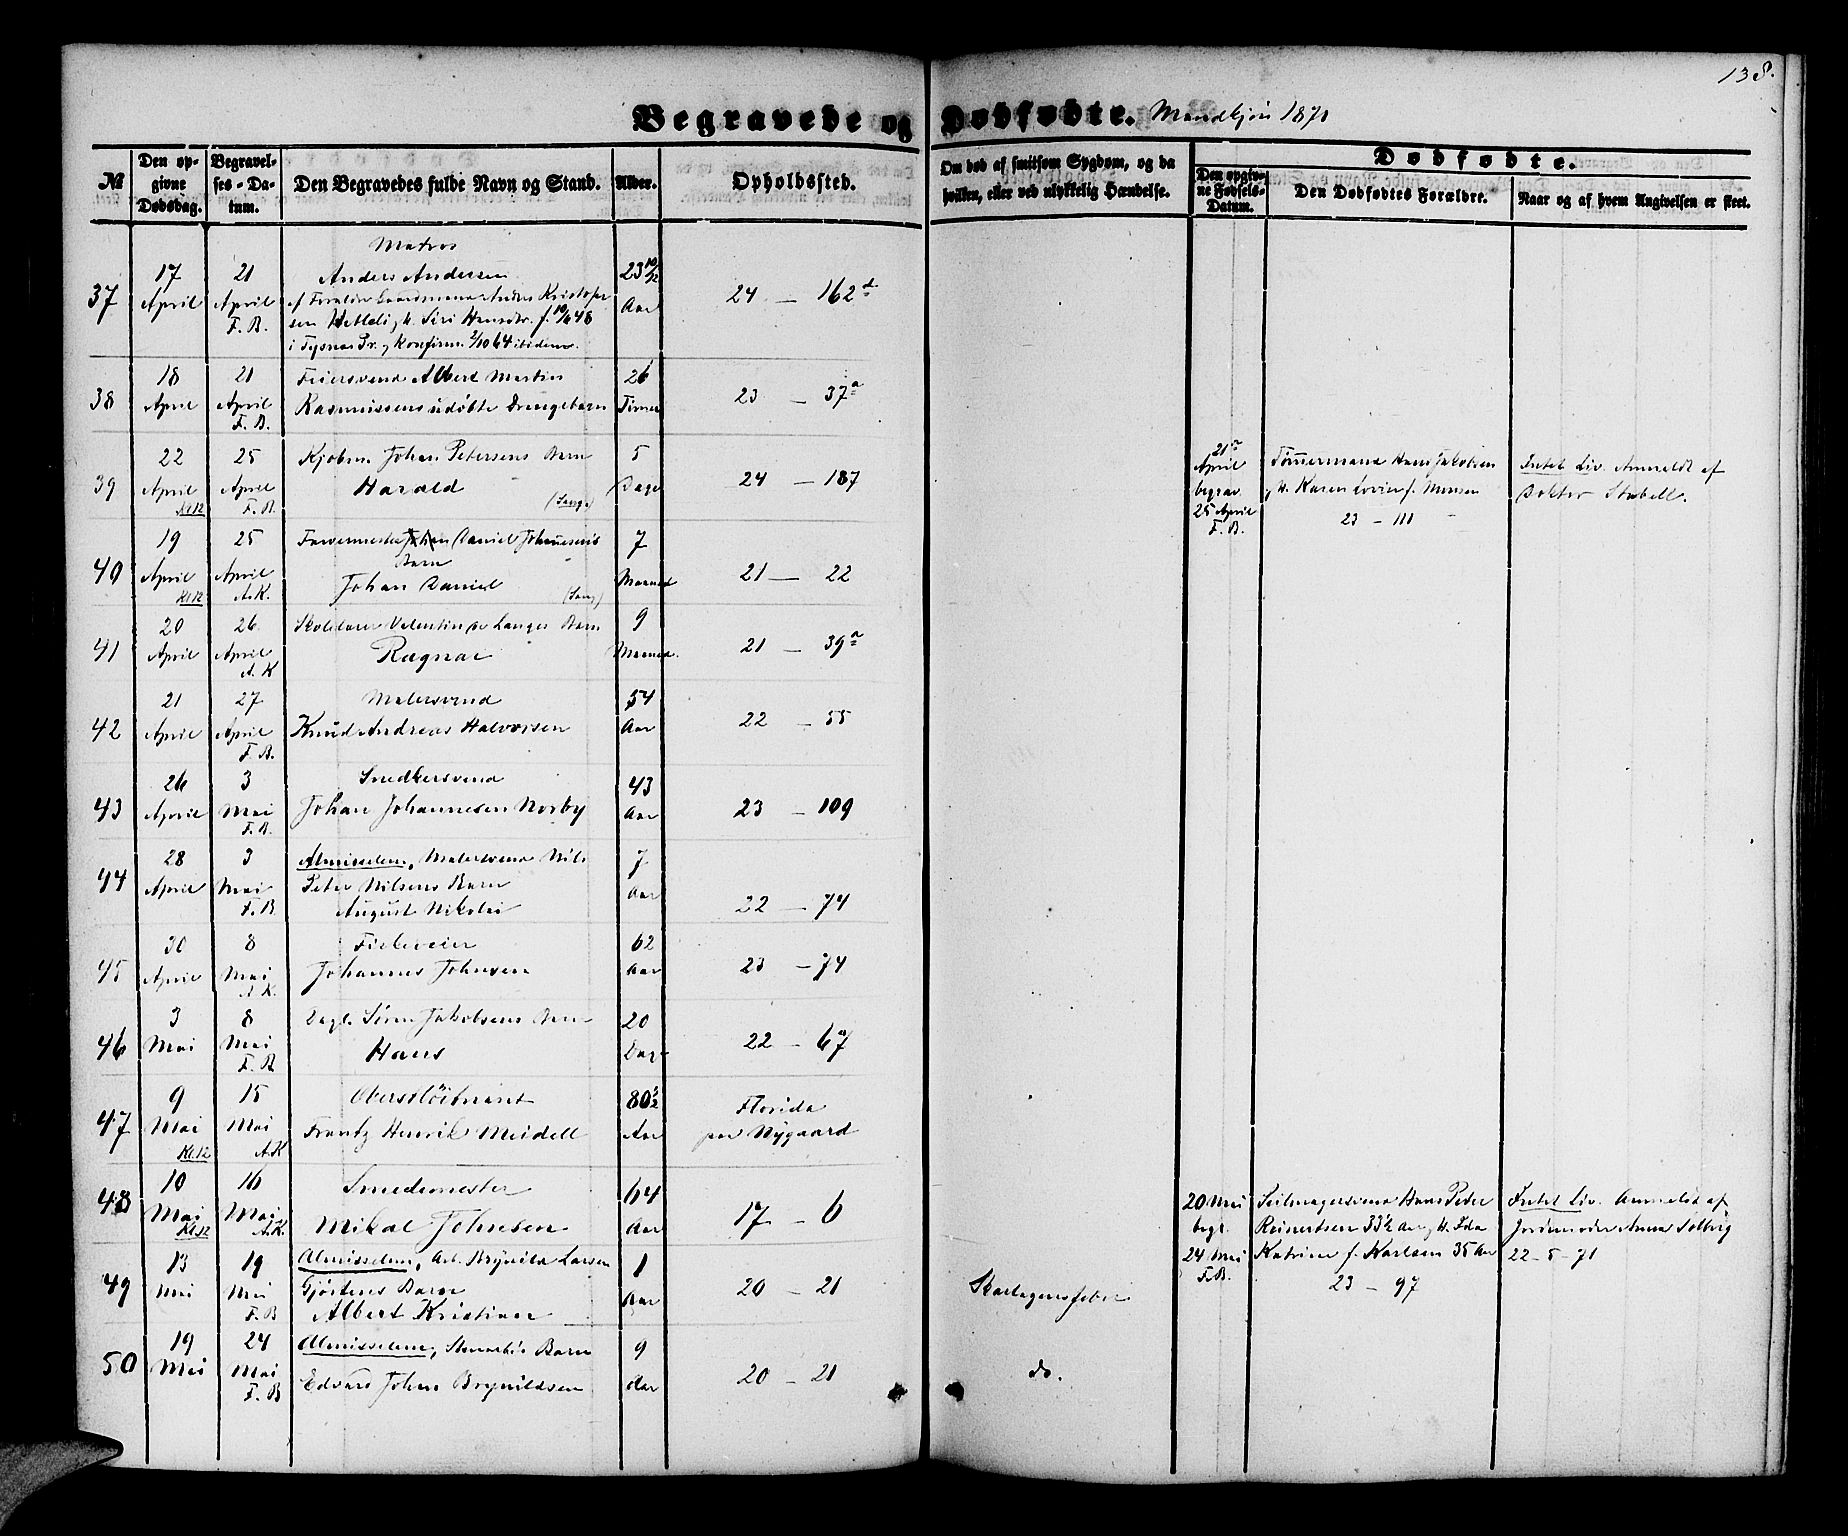 138.
Begravede og Dødfødte. Mandkjøn 1871
№
Den op-
givne
Dødsdag.
Begravel-
ses-Da-
tum.
Den Begravedes fulde Navn og Stand.
Alder.
Opholdssted.
Om død af smitsom Sygdom, og da
hvilken, eller ved ulykkelig Hændelse.
Dødfødte.
Den opgiv-
ne Fødsels-
Datum.
Den Dødfødtes Forældre.
Naar og af hvem Angivelsen er skeet.
37
17
April
21
April
F. B.
Matros
Anders Andersen
i Tysnæs Pr. og Konfirm. 2/10 64 ibidem.
23 10/12
Aar
24 - 162
38
18
April
21
April
F. B.
Feiersvend Albert Martin
Rasmussens udøbte Drengebarn
26
Timer
23 - 37a
39
22
April
Kl 12
25
April
F. B.
Kjøbm. Johan Petersens Barn
Harald
(Sang)
5
Dage
24 - 187
21
April
begrav.
25 April
F. B.
Tømmermand Hans Jakobsen
23 - 111
Intet Liv. Anmeldt af
Doktor Stabell.
40
19
April
Kl 12
25
April
A. K.
Farvermester Daniel Johannesens
Barn
Johan Daniel
(Sang)
7
Maaned
21 - 22
41
20
April
26
April
A. K
Barn
Ragnar
9
Maaned.
21 - 39a
42
21
April
27
April
F. B.
Malersvend
Knud Andreas Halvorsen
54
Aar
22 - 55
43
26
April
3
Mai
F. B.
Snedkersvend
Johan Johannesen Norby
43
Aar
23 - 109
44
28
April
3
Mai
F. B
Almisselem, Malersvend Nils
Peter Nilsens Barn
August Nikolai
7
Aar
22 - 74
45
30
April
8
Mai
A. K.
Fisleveier
Johannes Johnsen
62
Aar
23 - 74
46
3
Mai
8
Mai
F. B
Dagl. Sören Jakobsens Barn
Hans
20
Dage
22 - 67
47
9
Mai
Kl. 12
15
Mai
A. K
Oberstlöitnant
Frantz Henrik Meidell
80 ½
Aar
Florida
paa Nygaard
48
10
Mai
Kl 12
16
Mai
A. K.
Smedemester
Mikal Johnsen
64
Aar
17 - 6
20 Mai
begr.
24 Mai
F. B.
Seilmagersvend Hans Peder
Reinertsen 33½ Aar og H. Ida
Katrine f. Karlsen 35 Aar
23 - 97
Intet Liv. Anmeldt af
Jordemoder Anna Solvig
22-5-71
49
13
Mai
19
Mai
F. B
Almisselem, Arb. Brynild Larsen
Gjöstens Barn
Albert Kristian
1
Aar
20 - 21
Skarlagensfeber
50
19
Mai
24
Mai
F. B
Almisselem, Barn
Edvard Johan Brynildsen
9
Aar
20 - 21
do.